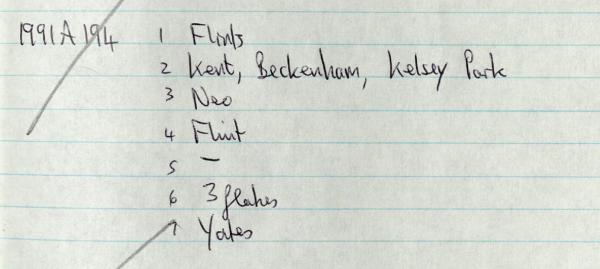 1991A194 1 Flints
2 Kent, Beckenham, Kelsey Park
3 Neo
4 Flint
5 —
6 3 flakes
7 Yates